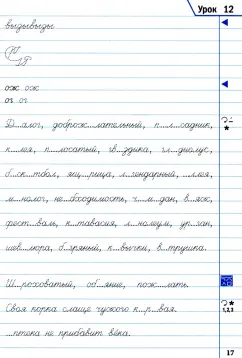 Урок 12
вызывызы
Р
В
ож ож
ог ог
Д...алог, доброж...лательный, п...л...садник,
к...лея, п...лосатый, гв...здика, гл...диолус,
б...ск...тбол, ящ...рица, л...гендарный, ...ллея,
м...нолог, не...бходимость, ч...м...дан, в...яж,
фест...валь, к...тавасия, л...нолеум, ур...ган,
шев...люра, б...гряный, к...вычки, в...трушка.
Ш...роховатый, об...яние, пож...лать.
Своя корка слаще чужого к...р...вая.
...птека не прибавит века.
1,2,3
17